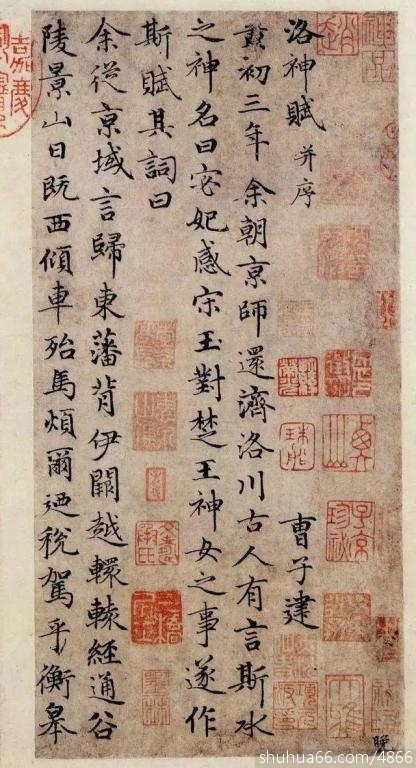 神品
洛神賦 并序 曹子建
黃初三年余朝京師還濟洛川古人有言斯水
之神名曰宓妃感宋玉對楚王神女之事遂作
斯賦其詞曰
余從京域言歸東藩背伊闕越轘轅經通谷
陵景山日既西傾車殆馬煩爾迺稅駕乎衡皋
子京
珍秘
嘉慶
晚
shuhua66.com/4866